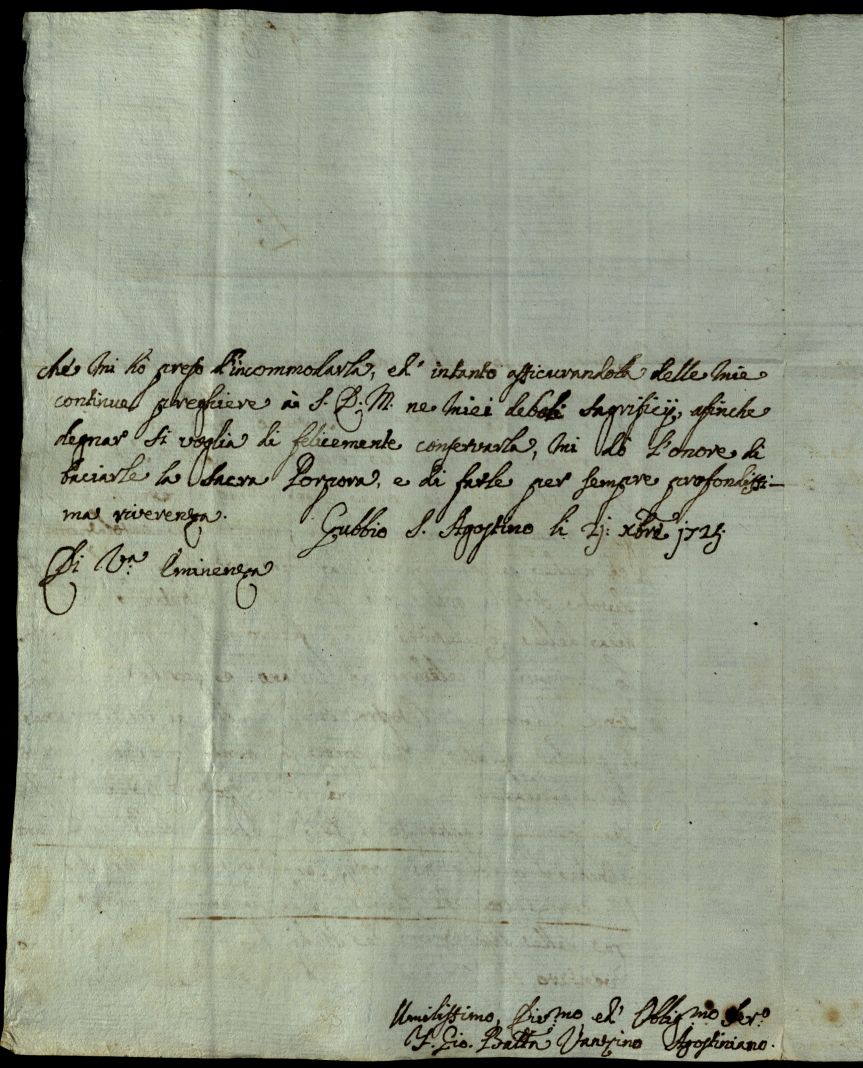 che mi hò preso d'incommodarla, ed' intanto assicurandola delle mie
continue preghiere à S. D. M. ne miei deboli sagrificij, affinche
degnar si voglia di felicemente conservarla, mi dò l'onore di
baciarle la Sacra Porpora, e di farle per sempre profondissi-
ma riverenza. Gubbio S. Agostino li xbre
Di Va. Eminenza
Umilissimo, ed' Obblig.mo Ser.o
F. Gio. Batta Agostiniano.